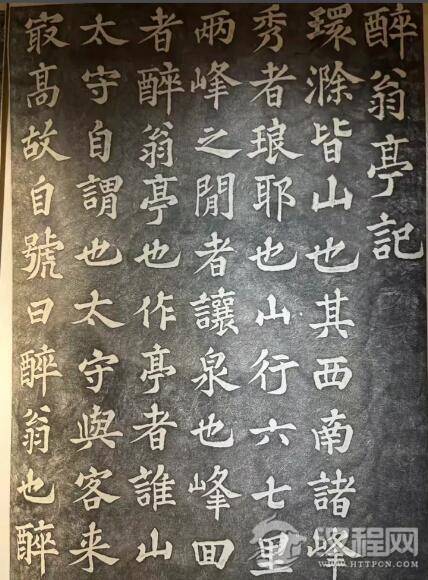 醉翁亭記
環滁皆山也其西南諸峰
秀者琅耶也山行六七里
兩峰之閒者讓泉也峰回
者醉翁亭也作亭者誰山
太守自謂也太守與客来
㝡高故自號曰醉翁也醉
汉程网
WWW.HTTPCN.COM